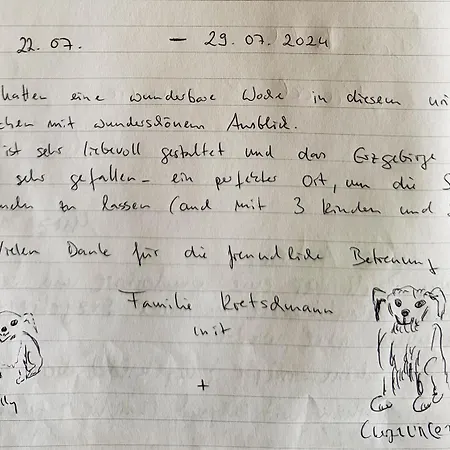 22.07. — 29.07.2024
hatten eine wunderbare Woche in diesem
chen mit wunderschönem Ausblick.
ist sehr liebevoll gestaltet und das Erzgebirge
sehr gefallen - ein perfekter Ort, um die S
zu lassen (auch mit 3 Kindern und
Vielen Dank für die freundliche Betreuung
Familie Kretschmann
mit
+
lly